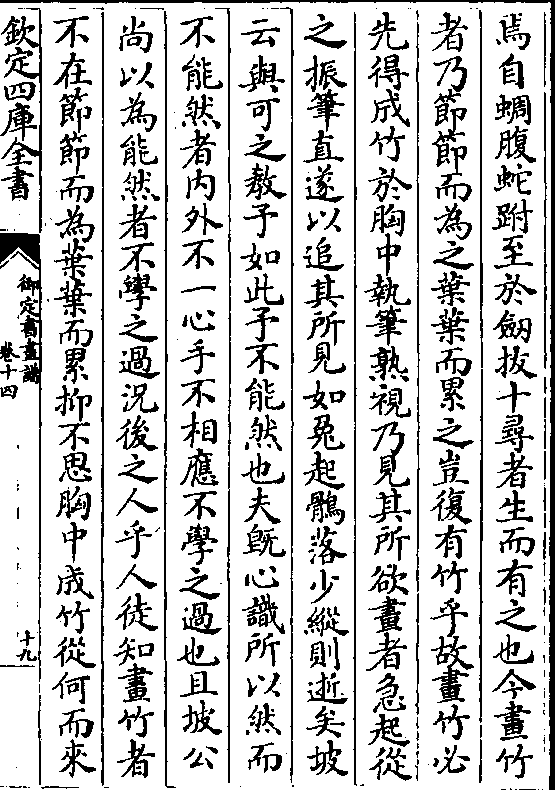 焉自蜩腹蛇跗至於劒拔十尋者生而有之也今畫竹
者乃節節而為之葉葉而累之豈復有竹乎故畫竹必
先得成竹於胸中執筆熟視乃見其所欲畫者急起從
之振筆直遂以追其所見如兔起鶻落少縱則逝矣坡
云與可之教予如此予不能然也夫既心識所以然而
不能然者内外不一心手不相應不學之過也且坡公
尚以為能然者不學之過況後之人乎人徒知畫竹者
不在節節而為葉葉而累抑不思胸中成竹從何而來
欽定四庫全書
御定書畫譜
卷十四
十九